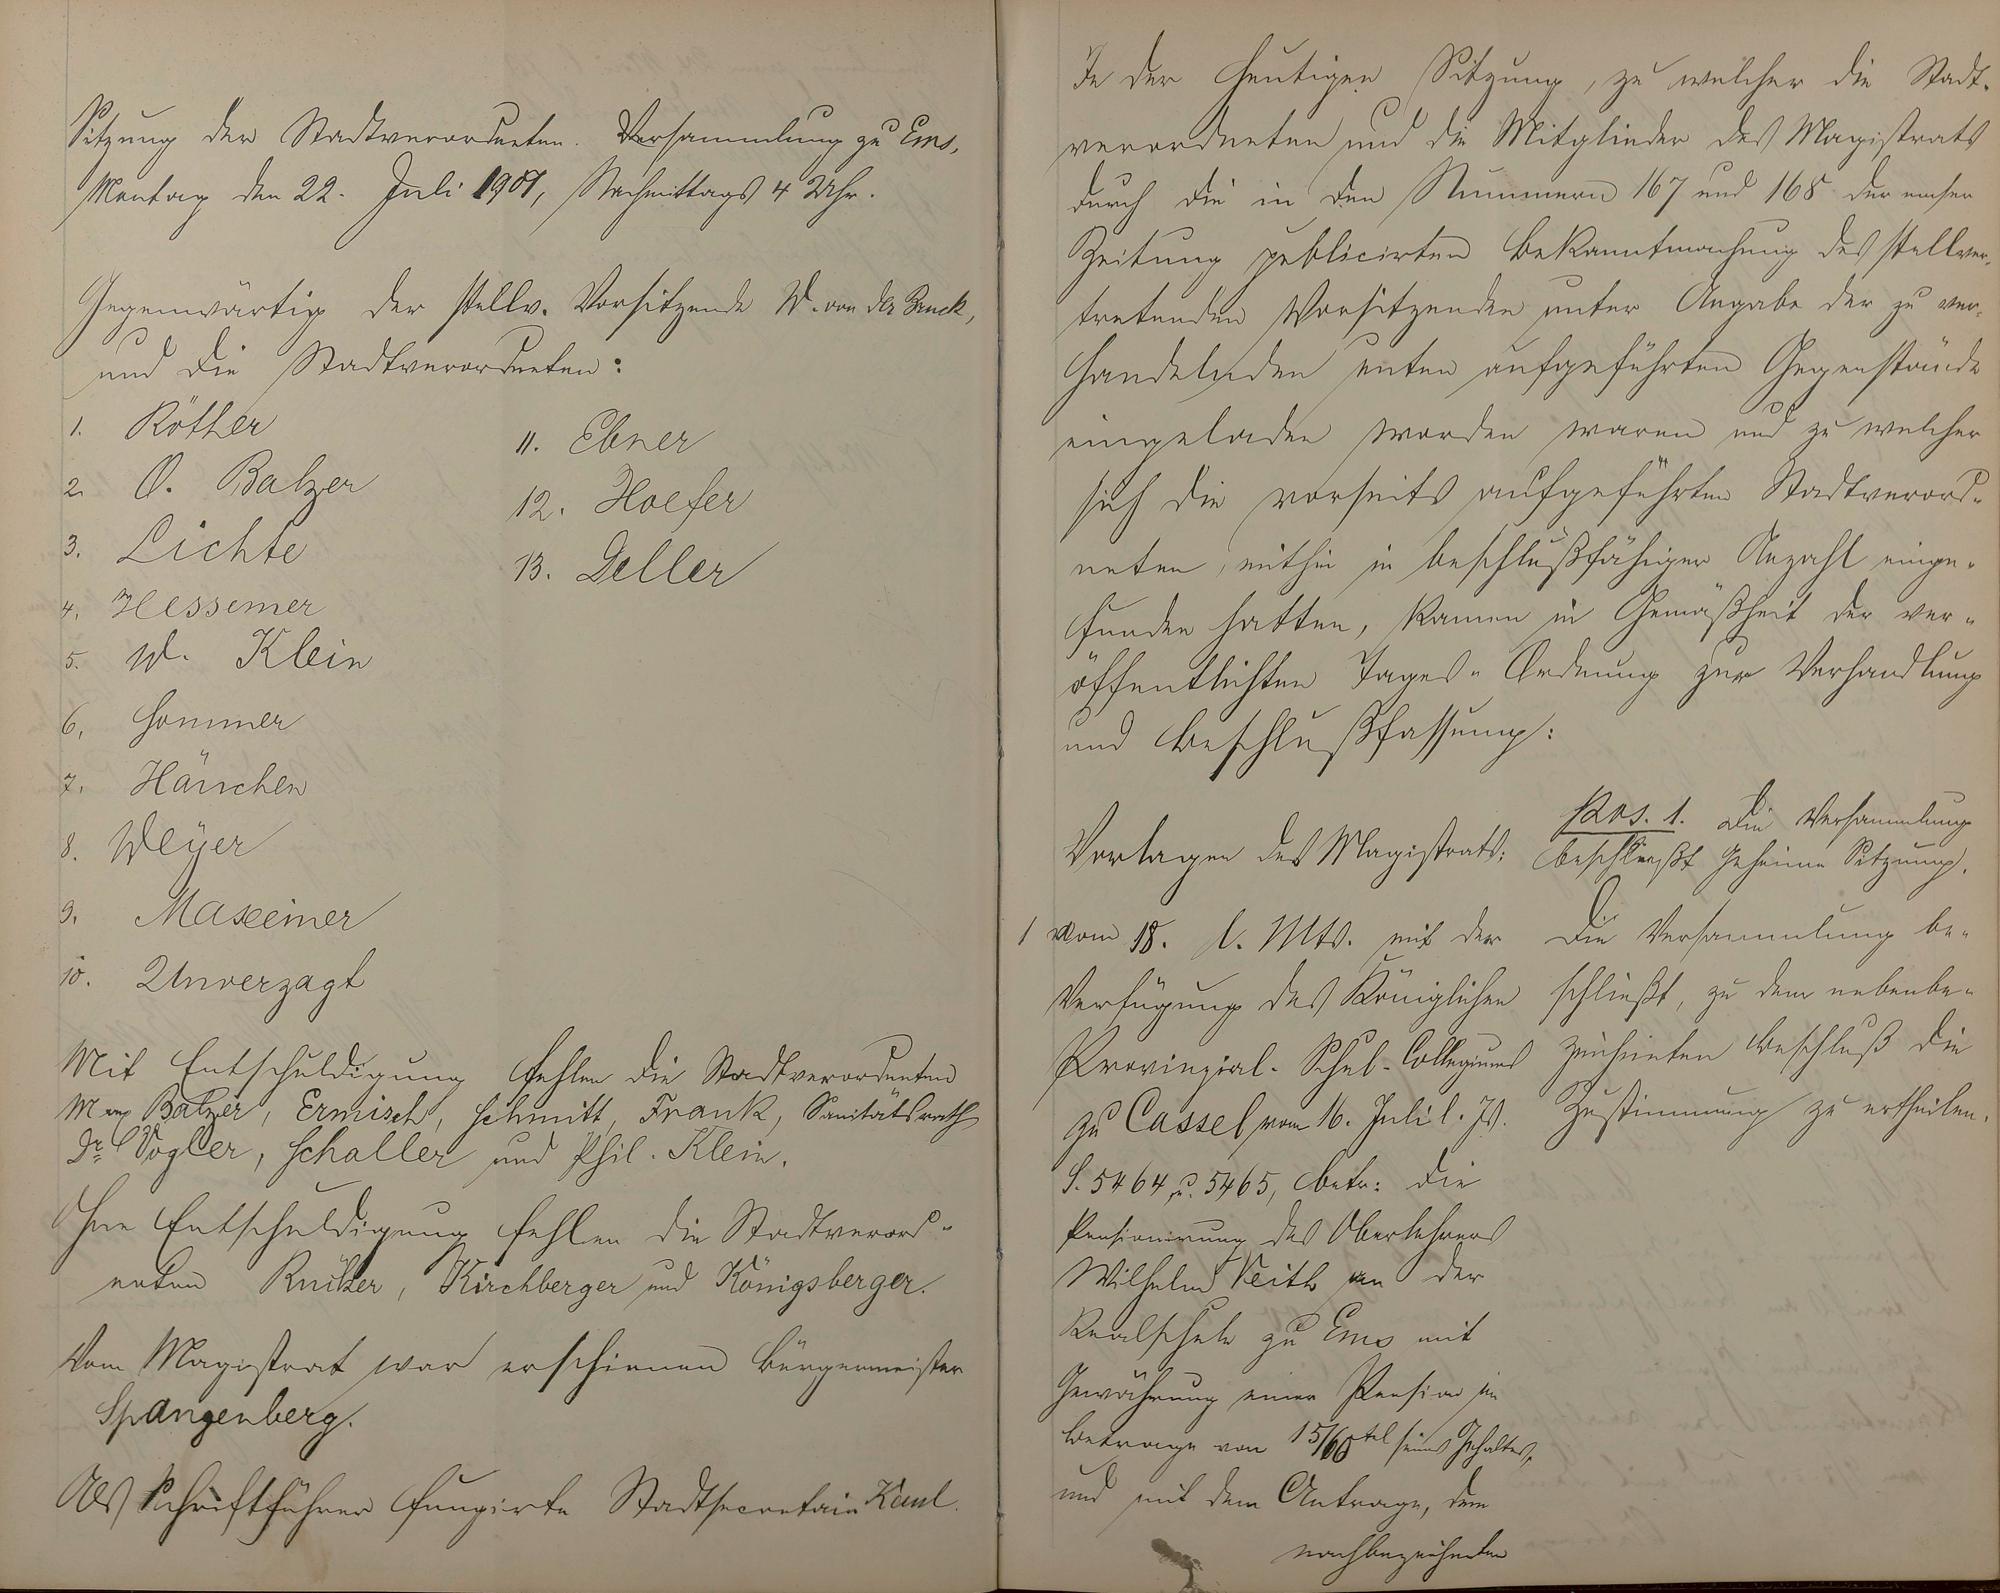 Sitzung der Stadtverordneten-Versammlung zu Ems,
Montag den 22. Juli 1901, Nachmittags 4 Uhr.
Gegenwärtig der stellv. Vorsitzende W. von der Bruck,
und die Stadtverordneten:
1. Röther
2. O. Balzer
3. Lichte
4. Hessemer
5. W. Klein
6. Sommer
7. Hänchen
8. Weyer
9. Maxeiner
10. Unverzagt
11. Ebner
12. Hoefer
13. Deller
Mit Entschuldigung fehlen die Stadtverordneten
Max Balzer, Ermisch, Schmitt, Frank, Sanitätsrath
Dr. Vogler, Schaller und Phil. Klein.
Ohne Entschuldigung fehlen die Stadtverord-
neten Rücker, Kirchberger und Königsberger.
Vom Magistrat war erschienen Bürgermeister
Spangenberg.
Als Schriftführer fungirte Stadtsecretair Kaul.
In der heutigen Sitzung, zu welcher die Stadt-
verordneten und die Mitglieder des Magistrats
durch die in den Nummern 167 und 168 der emser
Zeitung publicirten Bekanntmachung des stellver-
tretenden Vorsitzenden unter Angabe der zu ver-
handelnden unten aufgeführten Gegenstände
eingeladen worden waren und zu welcher
sich die vorseits aufgeführten Stadtverord-
neten, mithin in beschlußfähiger Anzahl einge-
funden hatten, kamen in Gemäßheit der ver-
öffentlichten Tages-Ordnung zur Verhandlung
und Beschlußfassung:
Vorlagen des Magistrats:
1 vom 18. l. Mts. mit der
Verfügung des Königlichen
Provinzial-Schul-Collegiums
zu Cassel vom 16. Juli l. Js.
S. 5464 u. 5465, betr: die
Pensionirung des Oberlehrers
Wilhelm Veith an der
Realschule zu Ems mit
Gewährung einer Pension im
Betrage von 15/60tel seines Gehaltes,
und mit dem Antrage, dem
nachbezeichneten
Pos. 1. Die Versammlung
beschließt geheime Sitzung.
Die Versammlung be-
schließt, zu dem nebenbe-
zeichneten Beschluß die
Zustimmung zu ertheilen.